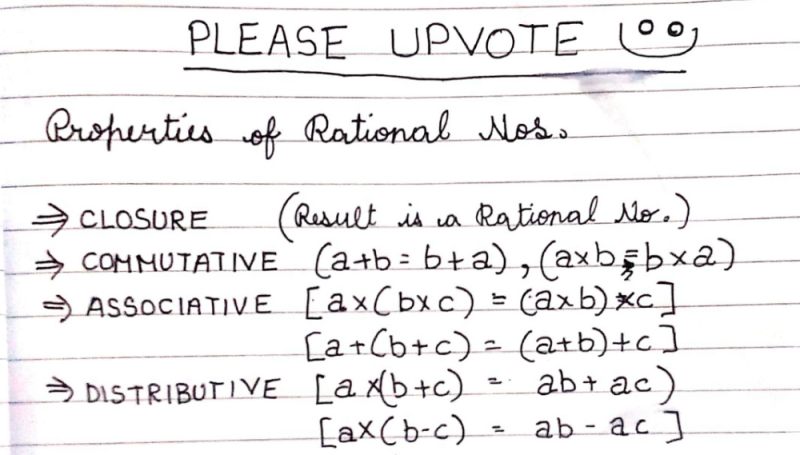 PLEASE UPVOTE
Properties of Rational Nos.
⇒ CLOSURE (Result is a Rational No.)
⇒ COMMUTATIVE (a+b = b+a), (a×b = b×a)
⇒ ASSOCIATIVE [a×(b×c) = (a×b)×c]
[a+(b+c) = (a+b)+c]
⇒ DISTRIBUTIVE [a×(b+c) = ab+ac)
[a×(b-c) = ab-ac]